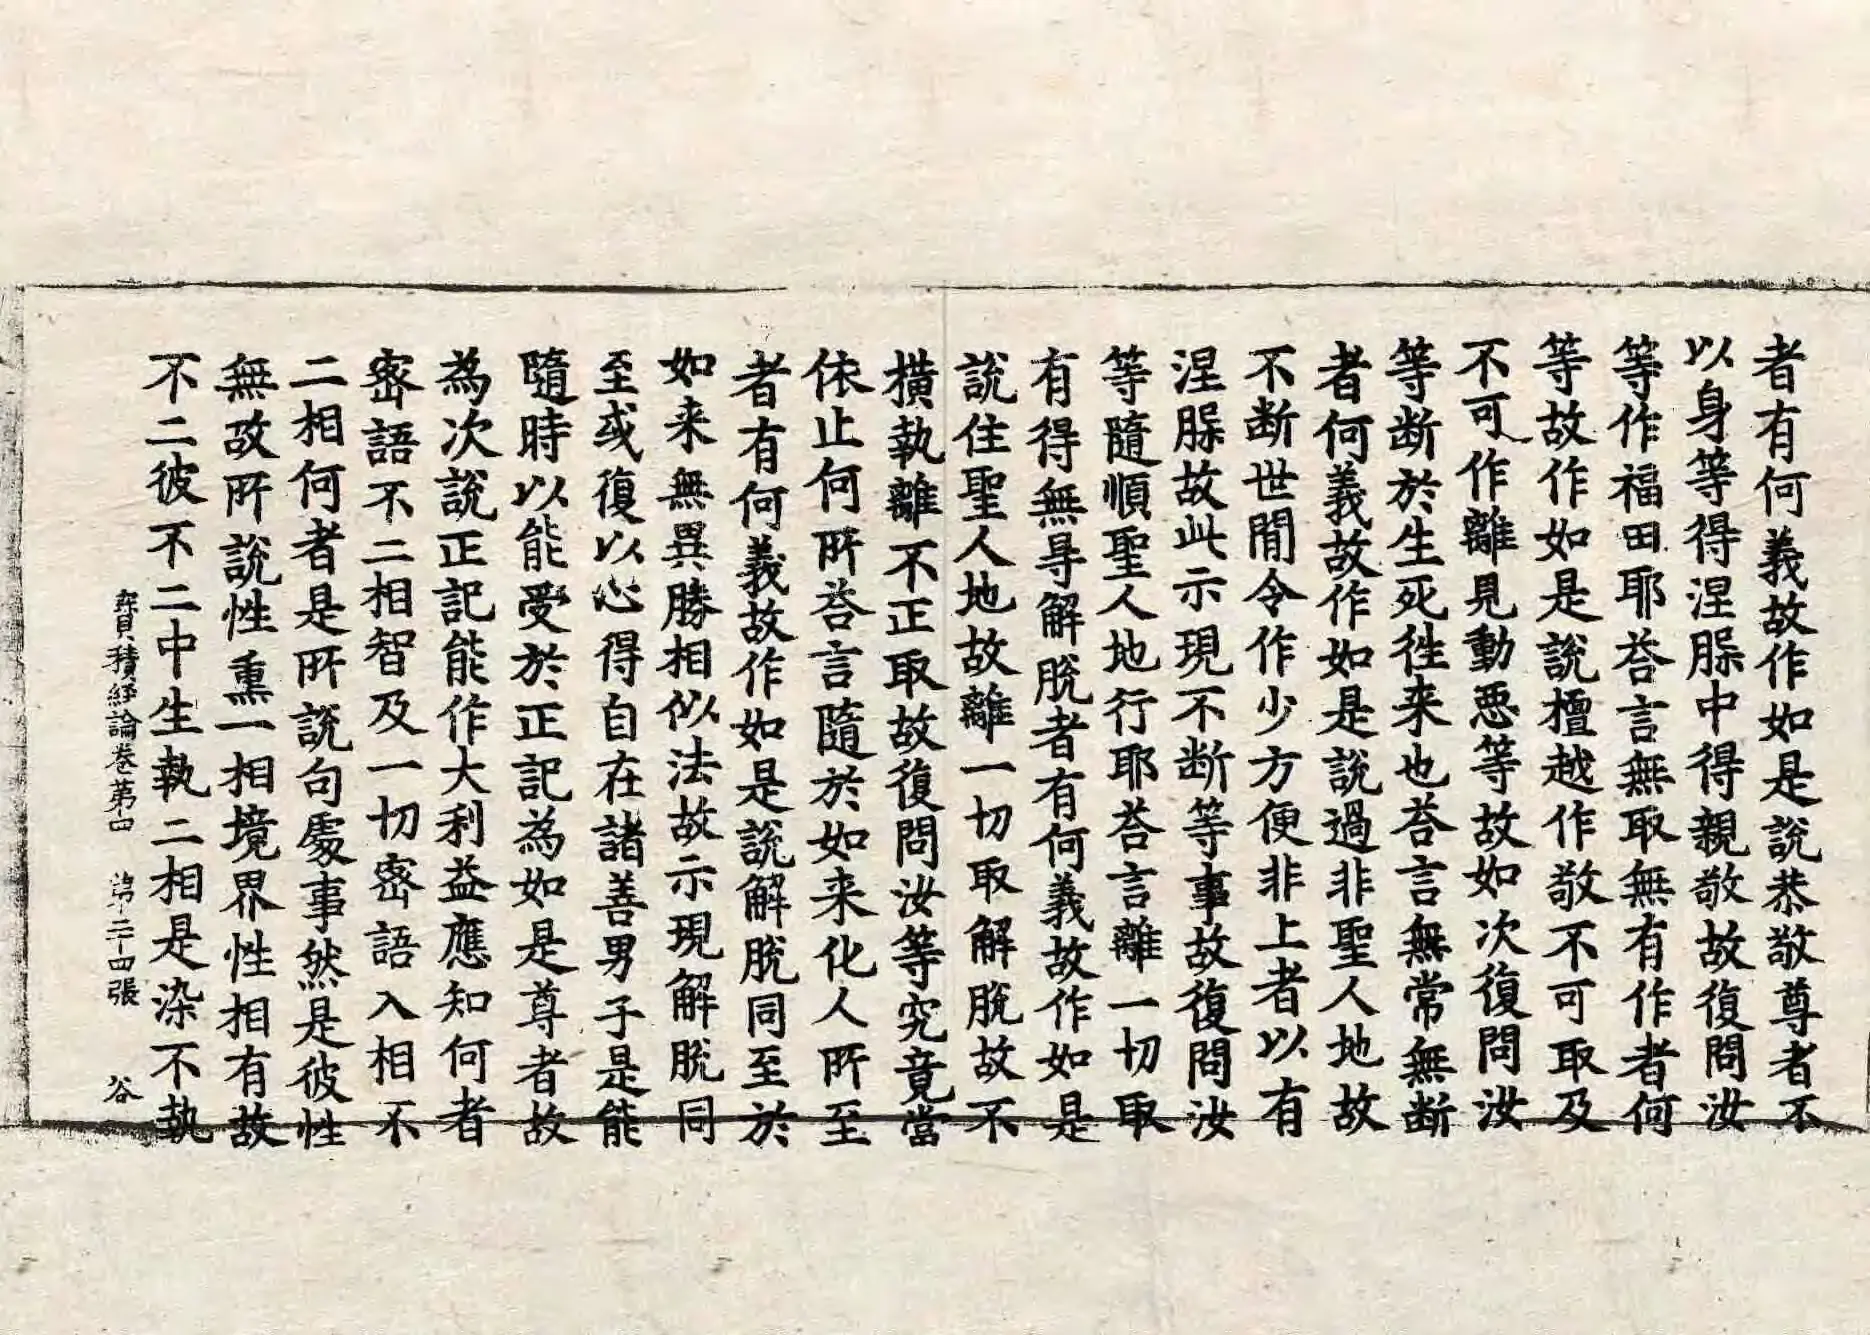 者有何義故作如是說恭敬尊者不
以身等得涅槃中得親敬故復問汝
等作福田耶荅言無取無有作者何
等故作如是說檀越作敬不可取及
不可作離見動惡等故如次復問汝
等断於生死徃来也荅言無常無断
者何義故作如是說過非聖人地故
不断世間令作少方便非上者以有
涅槃故此示現不断等事故復問汝
等隨順聖人地行耶荅言離一切取
有得無㝵解脫者有何義故作如是
說住聖人地故離一切取解脫故不
橫執離不正取故復問汝等究竟當
依止何所荅言隨於如来化人所至
者有何義故作如是說解脫同至於
如来無異勝相似法故示現解脫同
至或復以心得自在諸善男子是能
隨時以能受於正記為如是尊者故
為次說正記能作大利益應知何者
密語不二相智及一切密語入相不
二相何者是所說句處事然是彼性
無故所說性熏一相境界性相有故
不二彼不二中生執二相是染不執
寶積經論卷第四　第二十四張　谷